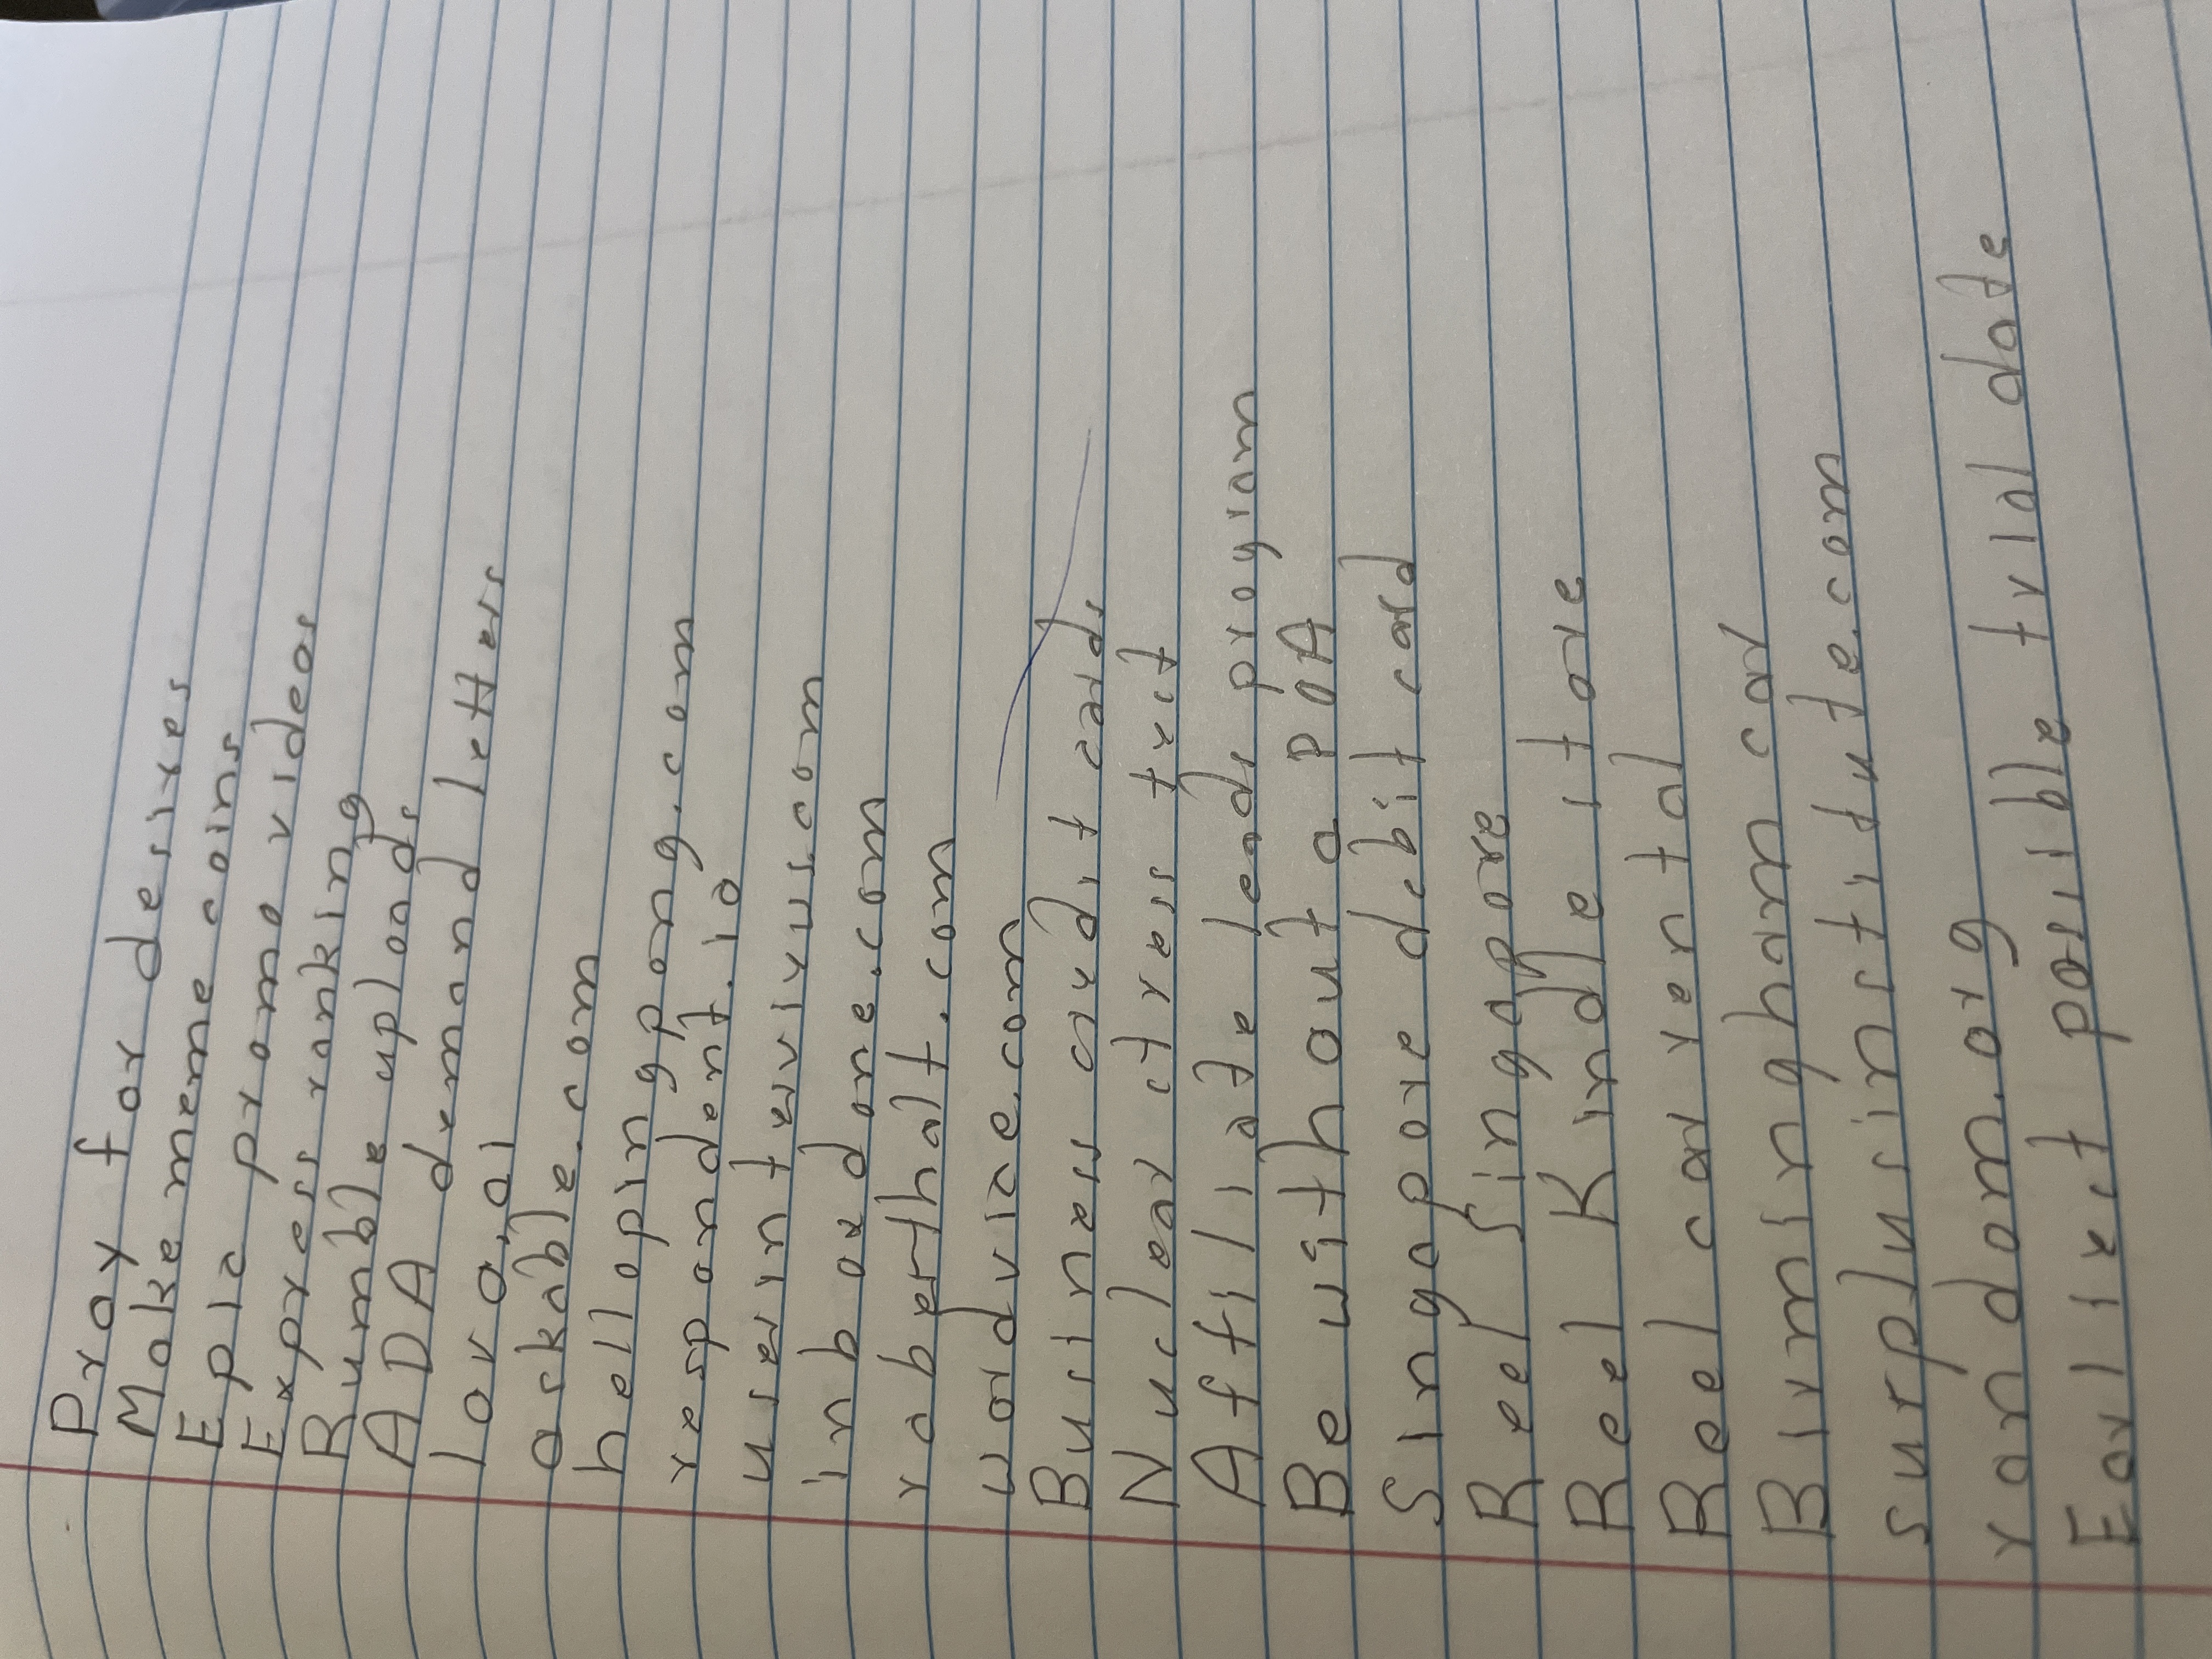 Pray for desires
Make meme coins
Epic promo videos
Express ranking
Rumble uploads
ADA demand letters
lovo.ai
askable.com
hellopingpong.com
respondent.io
userinterviews.com
inboxdone.com
roberthalf.com
wordvice.com
Business credit cards
Nuclear stress test
Affiliate leads program
Be without a POA
Singapore debit card
Reel Singapore
Reel Kindle store
Reel car rental
Birmingham car
surplusinstitute.com
random.org
Earliest possible trial date